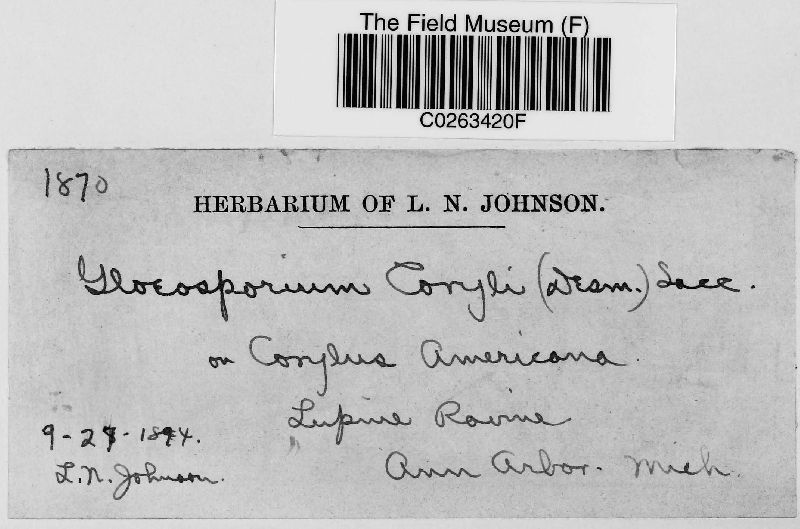 The Field Museum (F)
C0263420F
1870
HERBARIUM OF L. N. JOHNSON.
Gloeosporium Coryli (Desm.) Sacc.
on Corylus Americana.
Lupine Ravine
9-27-1894.
Ann Arbor. Mich.
L. N. Johnson.